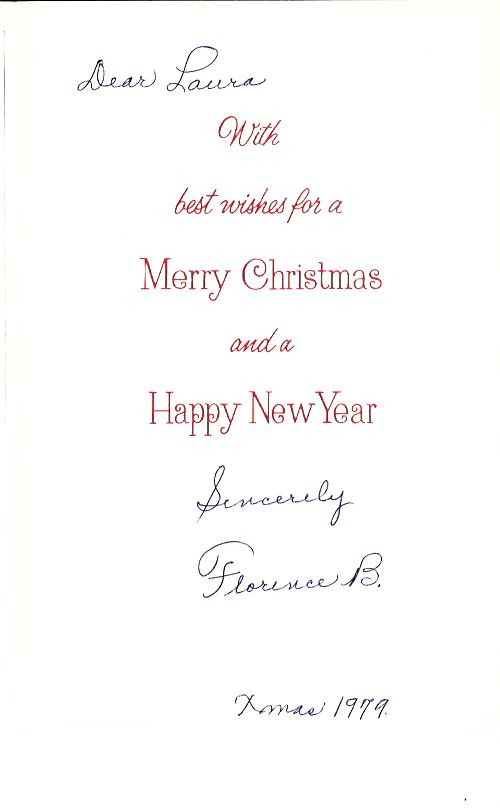 Dear Laura
With
best wishes for a
Merry Christmas
and a
Happy New Year
Sincerely
Florence B.
Xmas 1979.